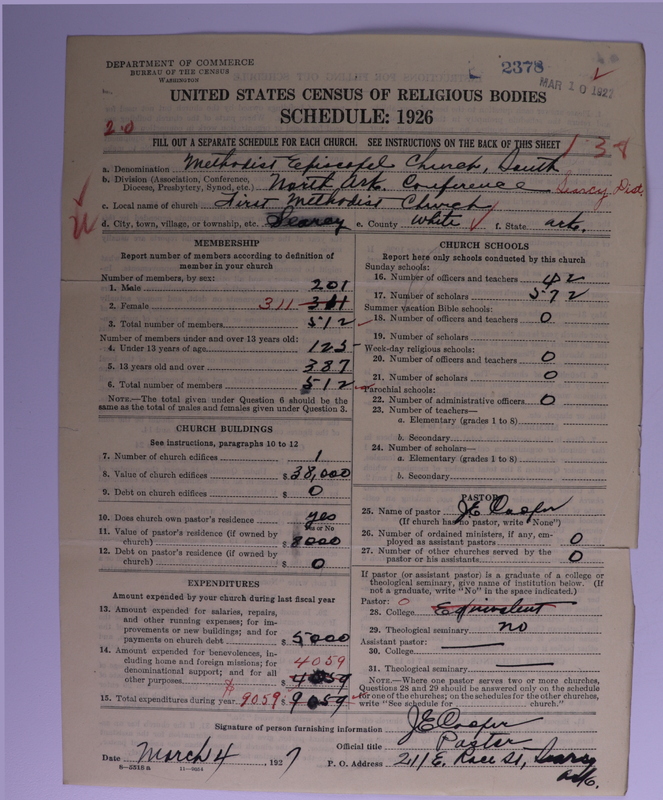 DEPARTMENT OF COMMERCE
BUREAU OF THE CENSUS
WASHINGTON
2378
MAR 10 1927
UNITED STATES CENSUS OF RELIGIOUS BODIES
SCHEDULE: 1926
2.0
FILL OUT A SEPARATE SCHEDULE FOR EACH CHURCH. SEE INSTRUCTIONS ON THE BACK OF THIS SHEET
138
a. Denomination Methodist Episcopal Church, South
b. Division (Association, Conference, Diocese, Presbytery, Synod, etc.) North Ark. Conference Searcy Dist.
c. Local name of church First Methodist Church
d. City, town, village, or township, etc. Searcy e. County White f. State Ark.
MEMBERSHIP
Report number of members according to definition of
member in your church
Number of members, by sex:
1. Male 201
2. Female 311 311
3. Total number of members 512
Number of members under and over 13 years old:
4. Under 13 years of age 125
5. 13 years old and over 387
6. Total number of members 512
NOTE.—The total given under Question 6 should be the
same as the total of males and females given under Question 3.
CHURCH BUILDINGS
See instructions, paragraphs 10 to 12
7. Number of church edifices 1
8. Value of church edifices $ 38,000
9. Debt on church edifices $ 0
10. Does church own pastor's residence yes
Yes or No
11. Value of pastor's residence (if owned by
church) $ 8000
12. Debt on pastor's residence (if owned by
church) $ 0
EXPENDITURES
Amount expended by your church during last fiscal year
13. Amount expended for salaries, repairs,
and other running expenses; for im-
provements or new buildings; and for
payments on church debt $ 5000
14. Amount expended for benevolences, in-
cluding home and foreign missions; for
denominational support; and for all
other purposes 4059
4059
15. Total expenditures during year $ 9059 $ 9059
CHURCH SCHOOLS
Report here only schools conducted by this church
Sunday schools:
16. Number of officers and teachers 42
17. Number of scholars 572
Summer vacation Bible schools:
18. Number of officers and teachers 0
19. Number of scholars
Week-day religious schools:
20. Number of officers and teachers 0
21. Number of scholars 0
Parochial schools:
22. Number of administrative officers 0
23. Number of teachers—
a. Elementary (grades 1 to 8)
b. Secondary
24. Number of scholars—
a. Elementary (grades 1 to 8)
b. Secondary
PASTOR
25. Name of pastor J E Cooper
(If church has no pastor, write "None")
26. Number of ordained ministers, if any, em-
ployed as assistant pastors 0
27. Number of other churches served by the
pastor or his assistants 0
If pastor (or assistant pastor) is a graduate of a college or
theological seminary, give name of institution below. (If
not a graduate, write "No" in the space indicated.)
Pastor: 0
28. College Equivalent
29. Theological seminary no
Assistant pastor:
30. College
31. Theological seminary
NOTE.—Where one pastor serves two or more churches,
Questions 28 and 29 should be answered only on the schedule
for one of the churches; on the schedules for the other churches,
write "See schedule for church."
Signature of person furnishing information J E Cooper
Official title Pastor
Date March 4, 1927 P. O. Address 211 E. Race St, Searcy
Ark.
8—5318 a 11—9024